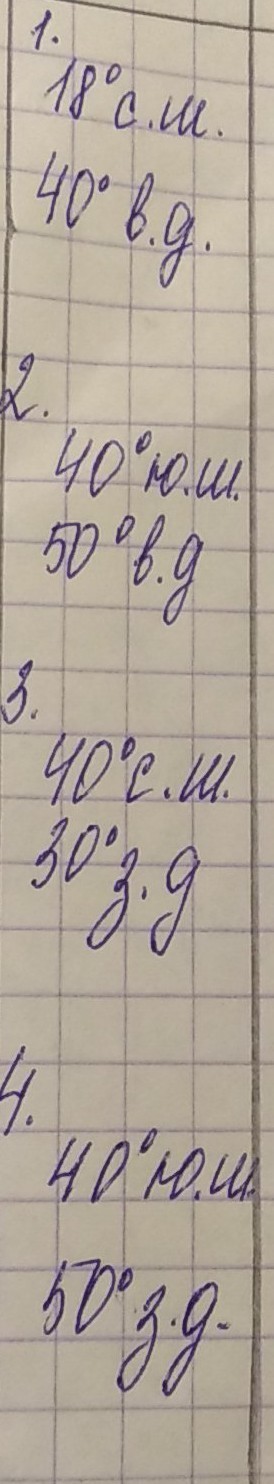 1.
18° с.ш.
40° в.д.
2.
40° ю.ш.
50° в.д
3.
40° с.ш.
30° з.д
4.
40° ю.ш.
50° з.д.